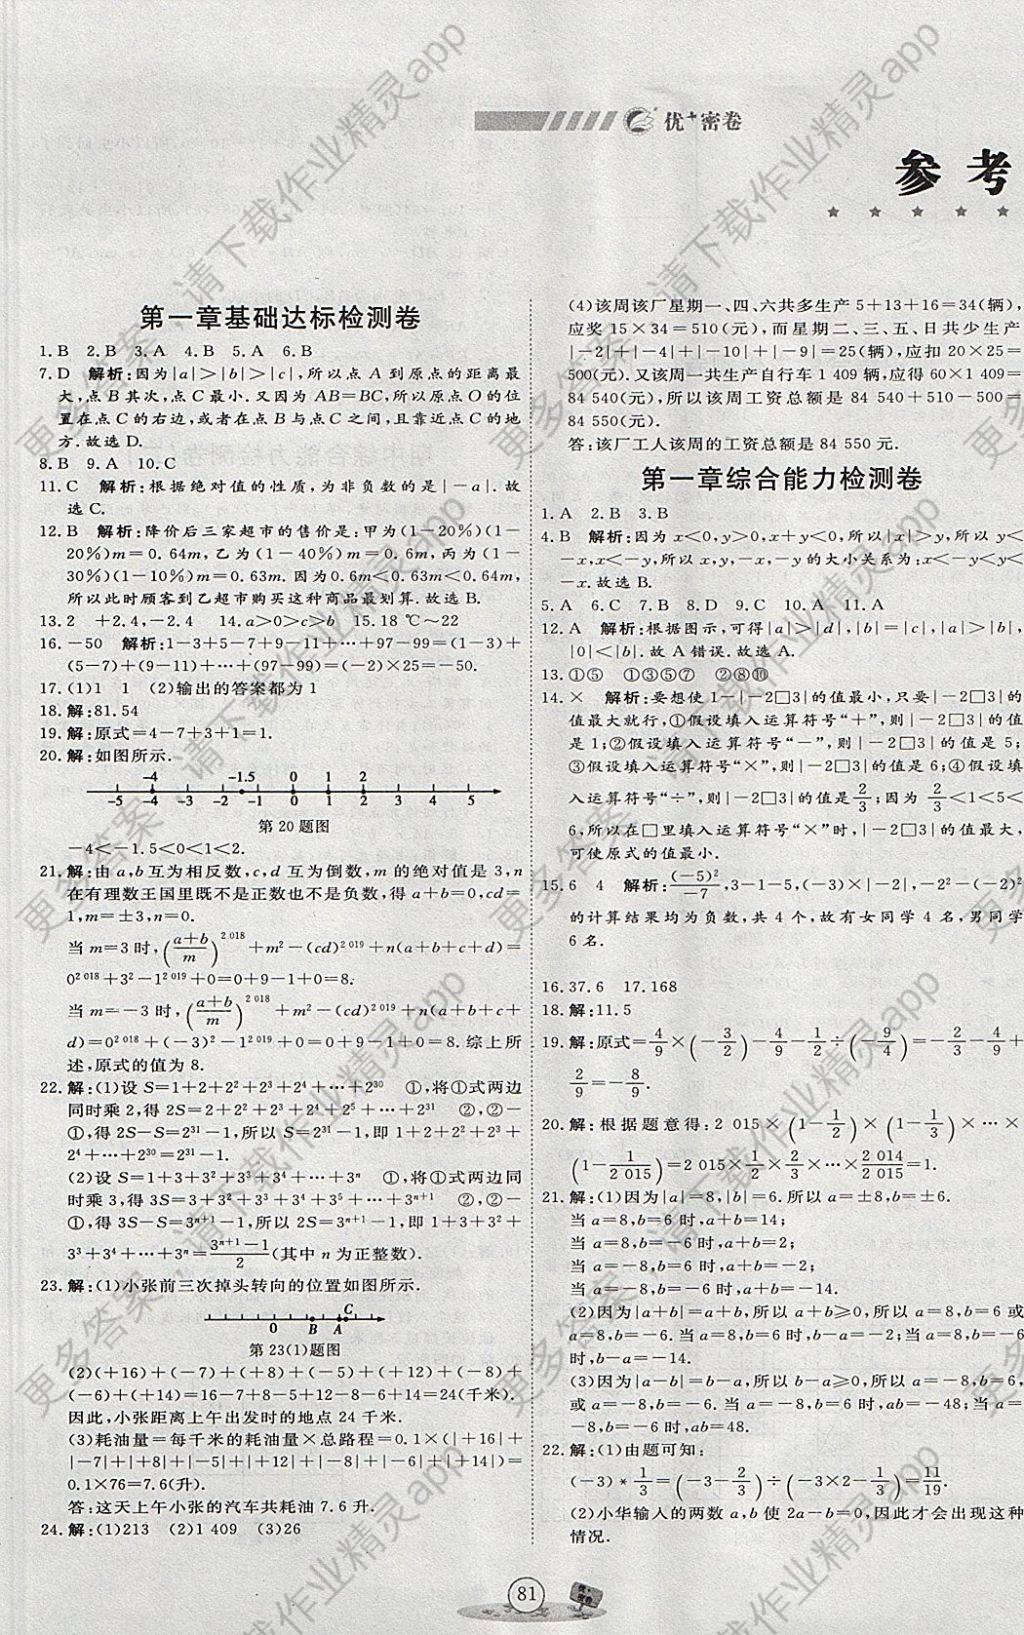 优+密卷
参考
第一章基础达标检测卷
1. B 2. B 3. A 4. B 5. A 6. B
7. D 解析:因为|a|>|b|>|c|,所以点 A 到原点的距离最
大,点 B 其次,点 C 最小.又因为 AB=BC,所以原点 O 的位
置在点 C 的右边,或者在点 B 与点 C 之间,且靠近点 C 的地
方.故选 D.
8. B 9. A 10. C
11. C 解析:根据绝对值的性质,为非负数的是|-a|.故
选 C.
12. B 解析:降价后三家超市的售价是:甲为(1-20%)(1-
20%)m=0.64m,乙为(1-40%)m=0.6m,丙为(1-
30%)(1-10%)m=0.63m.因为0.6m<0.63m<0.64m,
所以此时顾客到乙超市购买这种商品最划算.故选 B.
13. 2 +2.4,-2.4 14. a>0>c>b 15. 18 ℃~22
16. -50 解析:1-3+5-7+9-11+…+97-99=(1-3)+
(5-7)+(9-11)+…+(97-99)=(-2)×25=-50.
17. (1)1 1 (2)输出的答案都为 1
18. 解:81.54
19. 解:原式=4-7+3+1=1.
20. 解:如图所示.
-4 -1.5 0 1 2
-5 -4 -3 -2 -1 0 1 2 3 4 5
第 20 题图
-4<-1.5<0<1<2.
21. 解:由 a,b 互为相反数,c,d 互为倒数,m 的绝对值是 3,n
在有理数王国里既不是正数也不是负数,得 a+b=0,cd=
1,m=±3,n=0.
当 m=3 时,((a+b)/m)^2 018+m²-(cd)^2 019+n(a+b+c+d)=
0^2 018+3²-1^2 019+0=0+9-1+0=8.
当 m=-3 时,((a+b)/m)^2 018+m²-(cd)^2 019+n(a+b+c+
d)=0^2 018+(-3)²-1^2 019+0=0+9-1+0=8.综上所
述,原式的值为 8.
22. 解:(1)设 S=1+2+2²+2³+2⁴+…+2³⁰ ①,将①式两边
同时乘 2,得 2S=2+2²+2³+2⁴+2⁵+…+2³¹ ②,②-
①,得 2S-S=2³¹-1,所以 S=2³¹-1,即 1+2+2²+2³+
2⁴+…+2³⁰=2³¹-1.
(2)设 S=1+3+3²+3³+3⁴+…+3ⁿ ①,将①式两边同
时乘 3,得 3S=3+3²+3³+3⁴+3⁵+…+3ⁿ⁺¹ ②,②-
①,得 3S-S=3ⁿ⁺¹-1,所以 S=(3ⁿ⁺¹-1)/2,即 1+3+3²+
3³+3⁴+…+3ⁿ=(3ⁿ⁺¹-1)/2(其中 n 为正整数).
23. 解:(1)小张前三次掉头转向的位置如图所示.
0 B A C
第 23(1)题图
(2)(+16)+(-7)+(+8)+(-5)+(+12)+(-8)+
(-6)+(+14)=16-7+8-5+12-8-6+14=24(千米).
因此,小张距离上午出发时的地点 24 千米.
(3)耗油量=每千米的耗油量×总路程=0.1×(|+16|+
|-7|+|+8|+|-5|+|+12|+|-8|+|-6|+|+14|)=
0.1×76=7.6(升).
答:这天上午小张的汽车共耗油 7.6 升.
24. 解:(1)213 (2)1 409 (3)26
(4)该周该厂星期一、四、六共多生产 5+13+16=34(辆),
应奖 15×34=510(元),而星期二、三、五、日共少生产
|-2|+|-4|+|-10|+|-9|=25(辆),应扣 20×25=
500(元).又该周一共生产自行车 1 409 辆,应得 60×1 409=
84 540(元),所以该周工资总额是 84 540+510-500=
84 550(元).
答:该厂工人该周的工资总额是 84 550 元.
第一章综合能力检测卷
1. A 2. B 3. B
4. B 解析:因为 x<0,y>0,x+y<0,所以|x|>y,所以 y<
-x,x<-y,所以 x,y,-x,-y 的大小关系为:x<-y<y<
-x.故选 B.
5. A 6. C 7. B 8. D 9. C 10. A 11. A
12. A 解析:根据图示,可得|a|>|d|,|b|=|c|,|a|>|b|,
|0|<|b|.故 A 错误.故选 A.
13. ①⑤ ①③⑤⑦ ②⑧⑩
14. × 解析:要想使 1-|-2□3|的值最小,只要|-2□3|的
值最大就行,①假设填入运算符号“+”,则|-2□3|的值
是 1;②假设填入运算符号“-”,则|-2□3|的值是 5;
③假设填入运算符号“×”,则|-2□3|的值是 6;④假设填
入运算符号“÷”,则|-2□3|的值是2/3;因为 2/3<1<5<
6,所以在□里填入运算符号“×”时,|-2□3|的值最大,
可使原式的值最小.
15. 6 4 解析:(-5)²/-7,3-1-5,(-3)×|-2|,-2²-(-2)²
的计算结果均为负数,共 4 个,故有女同学 4 名,男同学
6 名.
16. 37.6 17. 168
18. 解:11.5
19. 解:原式=4/9×(-3/2)-4/9-1/2÷(-9/4)=-2/3-4/9+
2/9=-8/9.
20. 解:根据题意得:2 015×(1-1/2)×(1-1/3)×…×
(1-1/2 015)=2 015×1/2×2/3×…×2 014/2 015=1.
21. 解:(1)因为|a|=8,|b|=6.所以 a=±8,b=±6.
当 a=8,b=6 时,a+b=14;
当 a=8,b=-6 时,a+b=2;
当 a=-8,b=6 时,a+b=-2;
当 a=-8,b=-6 时,a+b=-14.
(2)因为|a+b|=a+b,所以 a+b≥0,所以 a=8,b=6 或
a=8,b=-6.当 a=8,b=6 时,b-a=-2;当 a=8,b=-6 时,
b-a=-14.
(3)因为|a-b|=b-a,所以 b-a≥0,所以 a=-8,b=6,
或 a=-8,b=-6.当 a=-8,b=6 时,ab=-48;当 a=
-8,b=-6 时,ab=48.
22. 解:(1)由题可知:
(-3)*1/3=(-3-2/3)÷(-3-2×(-3)×1/3)=11/19.
(2)小华输入的两数 a,b 使 2a=b=0,因此才会出现这种
情况.
81
优+密卷